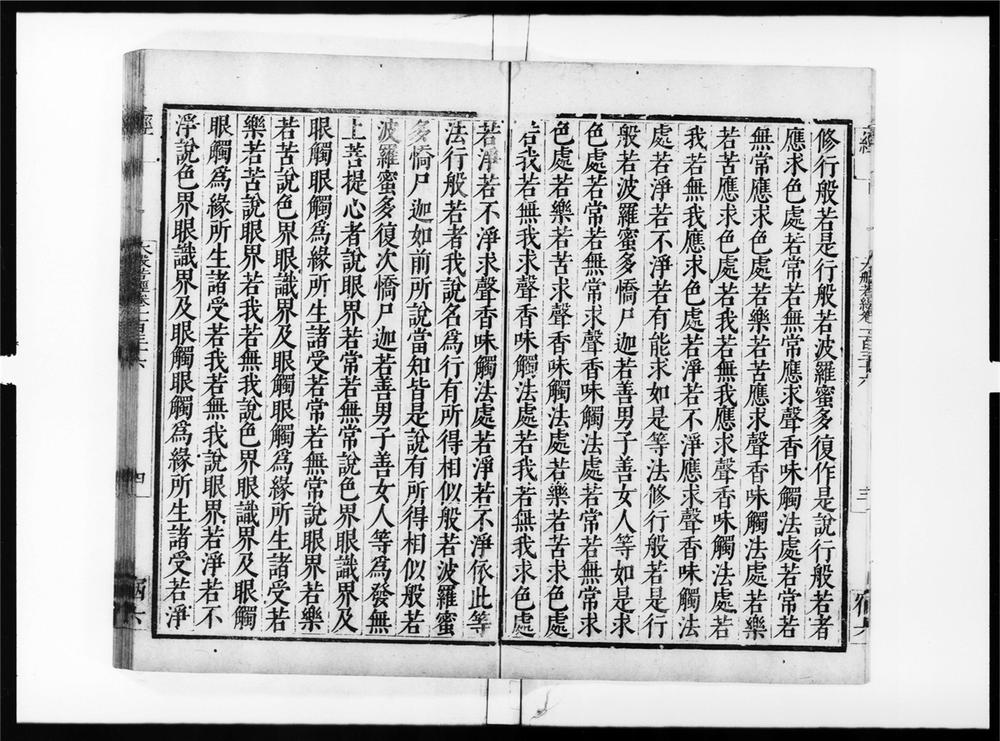 修行般若是行般若波羅蜜多復作是說行般若者
應求色處若常若無常應求聲香味觸法處若常若
無常應求色處若樂若苦應求聲香味觸法處若樂
若苦應求色處若我若無我應求聲香味觸法處若
我若無我應求色處若淨若不淨應求聲香味觸法
處若淨若不淨若有能求如是等法修行般若是行
般若波羅蜜多憍尸迦若善男子善女人等如是求
色處若常若無常求聲香味觸法處若常若無常求
色處若樂若苦求聲香味觸法處若樂若苦求色處
若我若無我求聲香味觸法處若我若無我求色處
若淨若不淨求聲香味觸法處若淨若不淨依此等
法行般若者我說名為行有所得相似般若波羅蜜
多憍尸迦如前所說當知皆是說有所得相似般若
波羅蜜多復次憍尸迦若善男子善女人等為發無
上菩提心者說眼界若常若無常說色界眼識界及
眼觸眼觸為緣所生諸受若常若無常說眼界若樂
若苦說色界眼識界及眼觸眼觸為緣所生諸受若
樂若苦說眼界若我若無我說色界眼識界及眼觸
眼觸為緣所生諸受若我若無我說眼界若淨若不
淨說色界眼識界及眼觸眼觸為緣所生諸受若淨
大般若經卷一百三十六
三
宿六
大般若經卷一百三十六
四
宿六